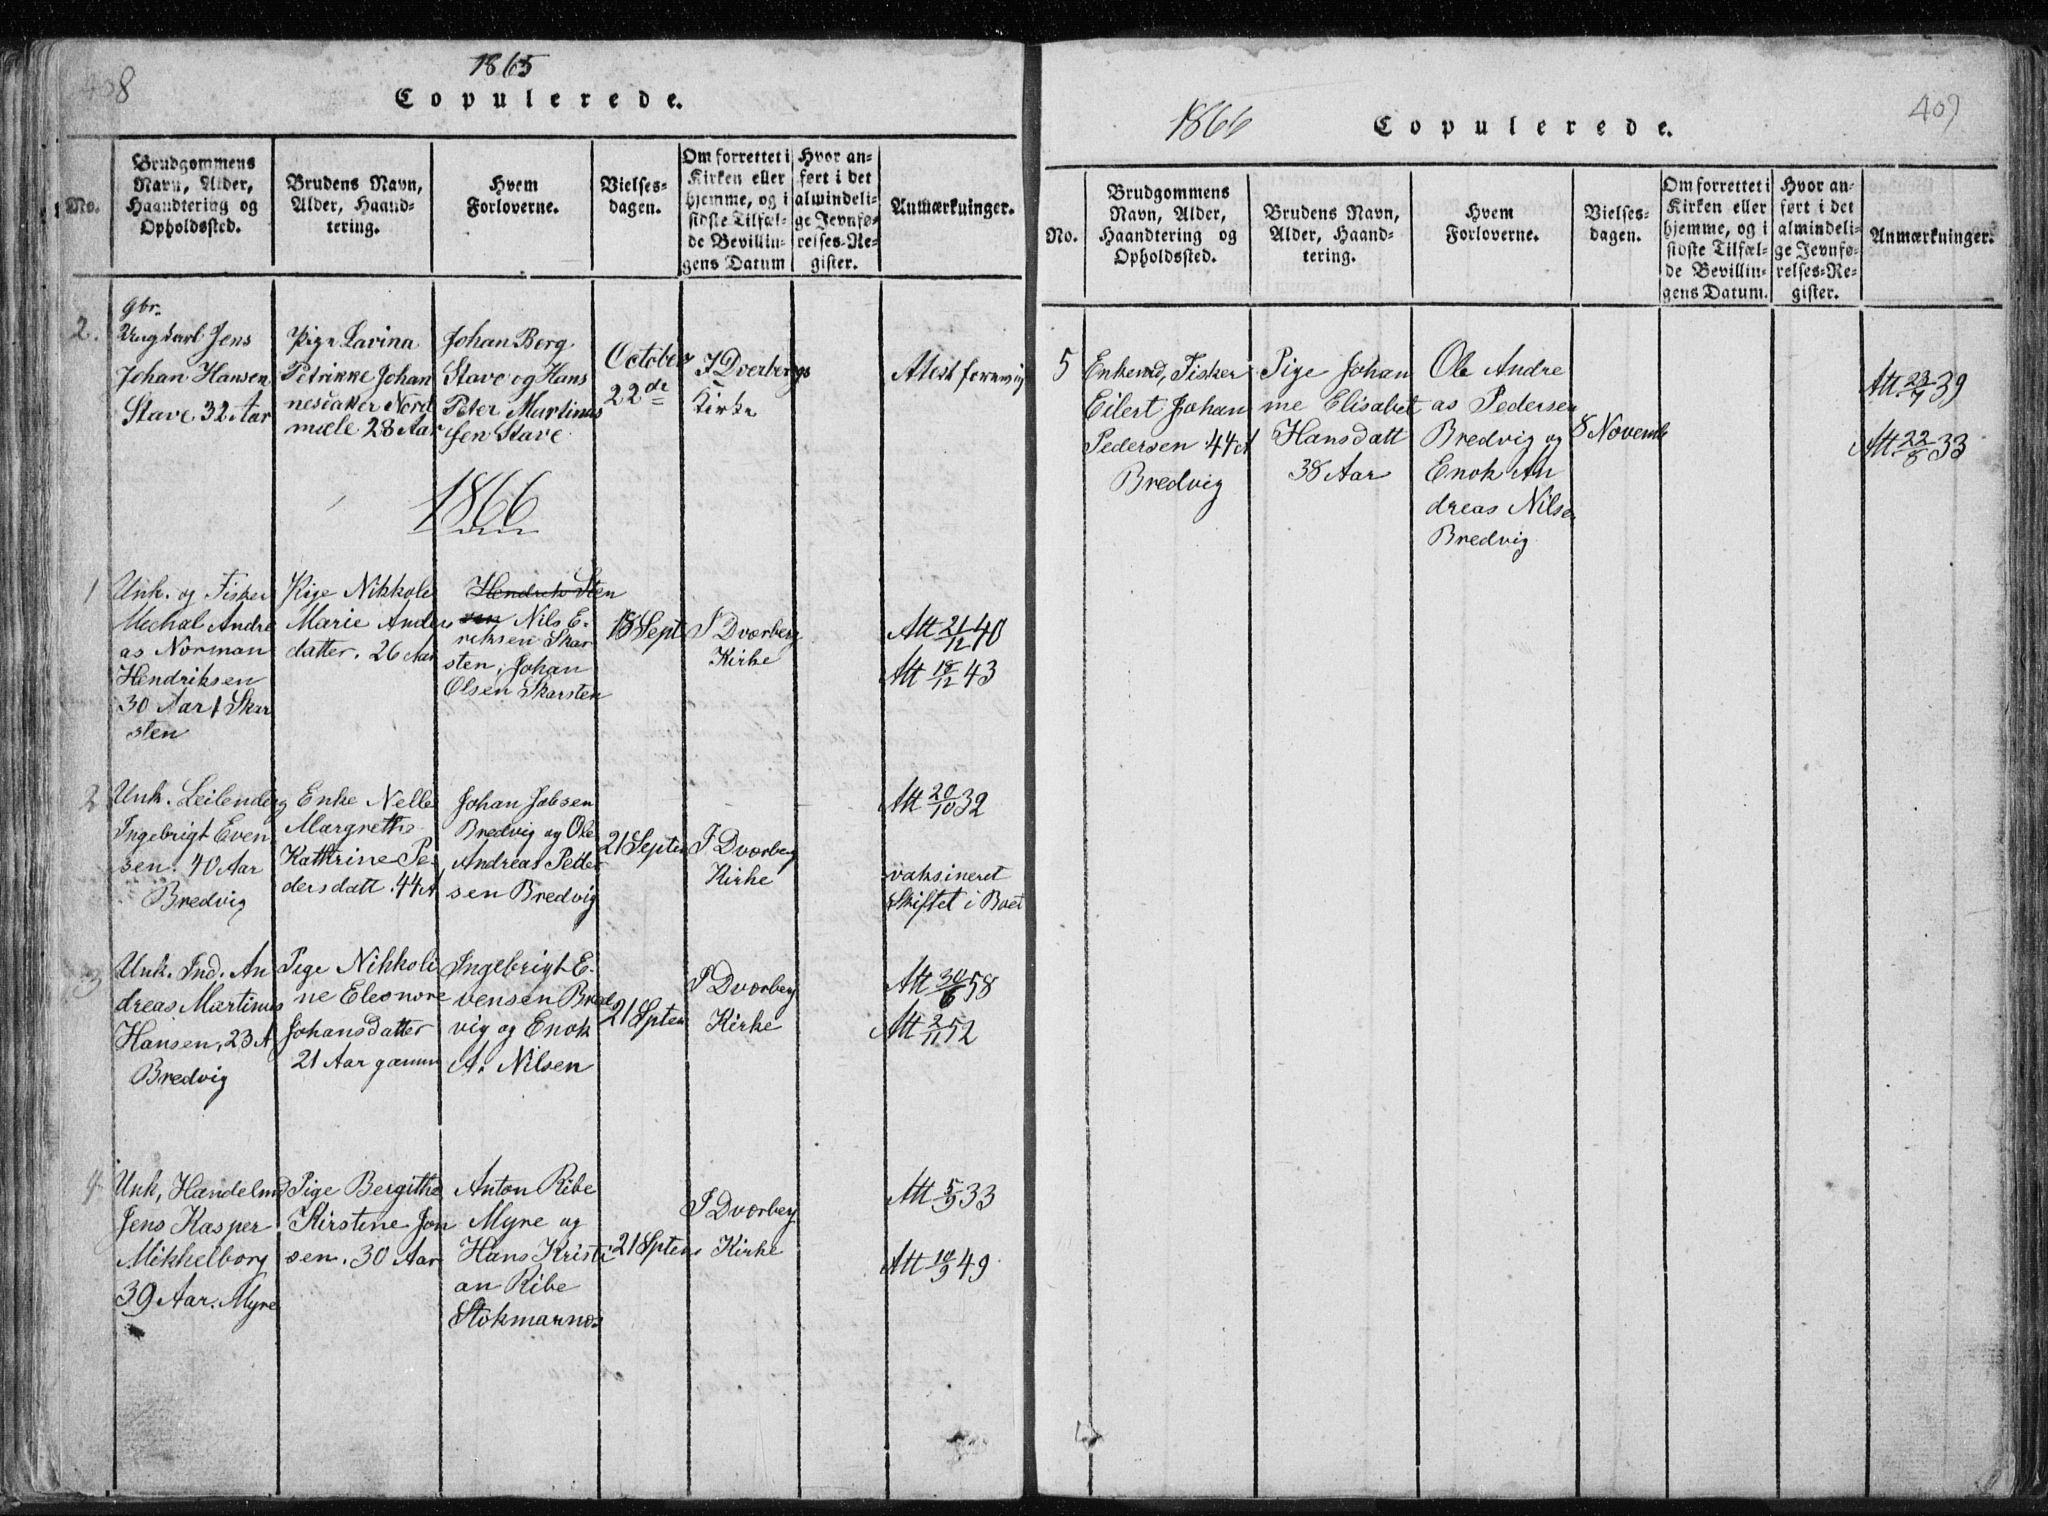 408
1865
Copulerede.
No.
Brudgommens
Navn, Alder,
Haandtering og
Opholdssted.
Brudens Navn,
Alder, Haand-
tering.
Hvem
Forloverne.
Vielses-
dagen.
Om forrettet i
Kirken eller
hjemme, og i
sidste Tilfæl-
de Bevillin-
gens Datum
Hvor an-
ført i det
almindeli-
ge Jevnfø-
relses-Re-
gister.
Anmærkninger.
2.
gbr.
Ungkarl Jens
Johan Hansen
Stave 32 Aar
Pige Lavina
Petrikke Johan
nesdatter Nord
miele 28 Aar
Johan Borg
Stave og Hans
Peter Martinus
sen Stave
October
22de
I Dverbergs
Kirke
Attest
1866
1
Unk. og Fisker
Mechal Andre
as Norman
Hendriksen
30 Aar / Skar
sten
Pige Nikkoli
Marie Anders
datter. 26 Aar
Hendrik Sten
sen Nils E-
riksen Skar
sten, Johan
Olsen Skarsten
18 Sept
I Dværberg
Kirke
Att 21/12 40
Att 18/12 43
2
Unk. Leilending
Ingebrigt Even
sen. 40 Aar
Bredvig
Enke Nelle
Margrethe
Kathrine Pe-
dersdatt. 44 A
Johan Jobsen
Bredvig og Ole
Andreas Peder
sen Bredvig
21 Septem
I Dværberg
Kirke
Att 20/10 32
vaksineret
Skiftet i Boet
3
Unk. Ind. An
dreas Martinus
Hansen, 23 A
Bredvig
Pige Nikkoli
ne Eleonore
Johansdatter
21 Aar gamm
Ingebrigt E-
vensen Bred
vig og Enok
A. Nilsen
21 Sptem
I Dværberg
Kirke
Att 30/6 58
Att 2/11 52
4
Unk, Handelmd
Jens Kasper
Mikkelborg
39 Aar. Myre
Pige Bergithe
Kirstine Jon
sen. 30 Aar
Anton Ribe
Myre og
Hans Kristi
an Ribe
Stokmarnøs
21 Sptem
I Dværberg
Kirke
Att 5/9 33
Att 10/9 49
409
1866
Copulerede.
No.
Brudgommens
Navn, Alder,
Haandtering og
Opholdssted.
Brudens Navn,
Alder, Haand-
tering.
Hvem
Forloverne.
Vielses-
dagen.
Om forrettet i
Kirken eller
hjemme, og i
sidste Tilfæl-
de Bevillin-
gens Datum.
Hvor an-
ført i det
almindeli-
ge Jevnfø-
relses-Re-
gister.
Anmærkninger.
5
Enkemd, Fisker
Eilert Johan
Pedersen 44 A
Bredvig
Pige Johan
me Elisabet
Hansdatt
38 Aar
Ole Andre
as Pedersen
Bredvig og
Enok An
dreas Nilsen
Bredvig
8 Novemb
Att 23/7 39
Att 22/8 33